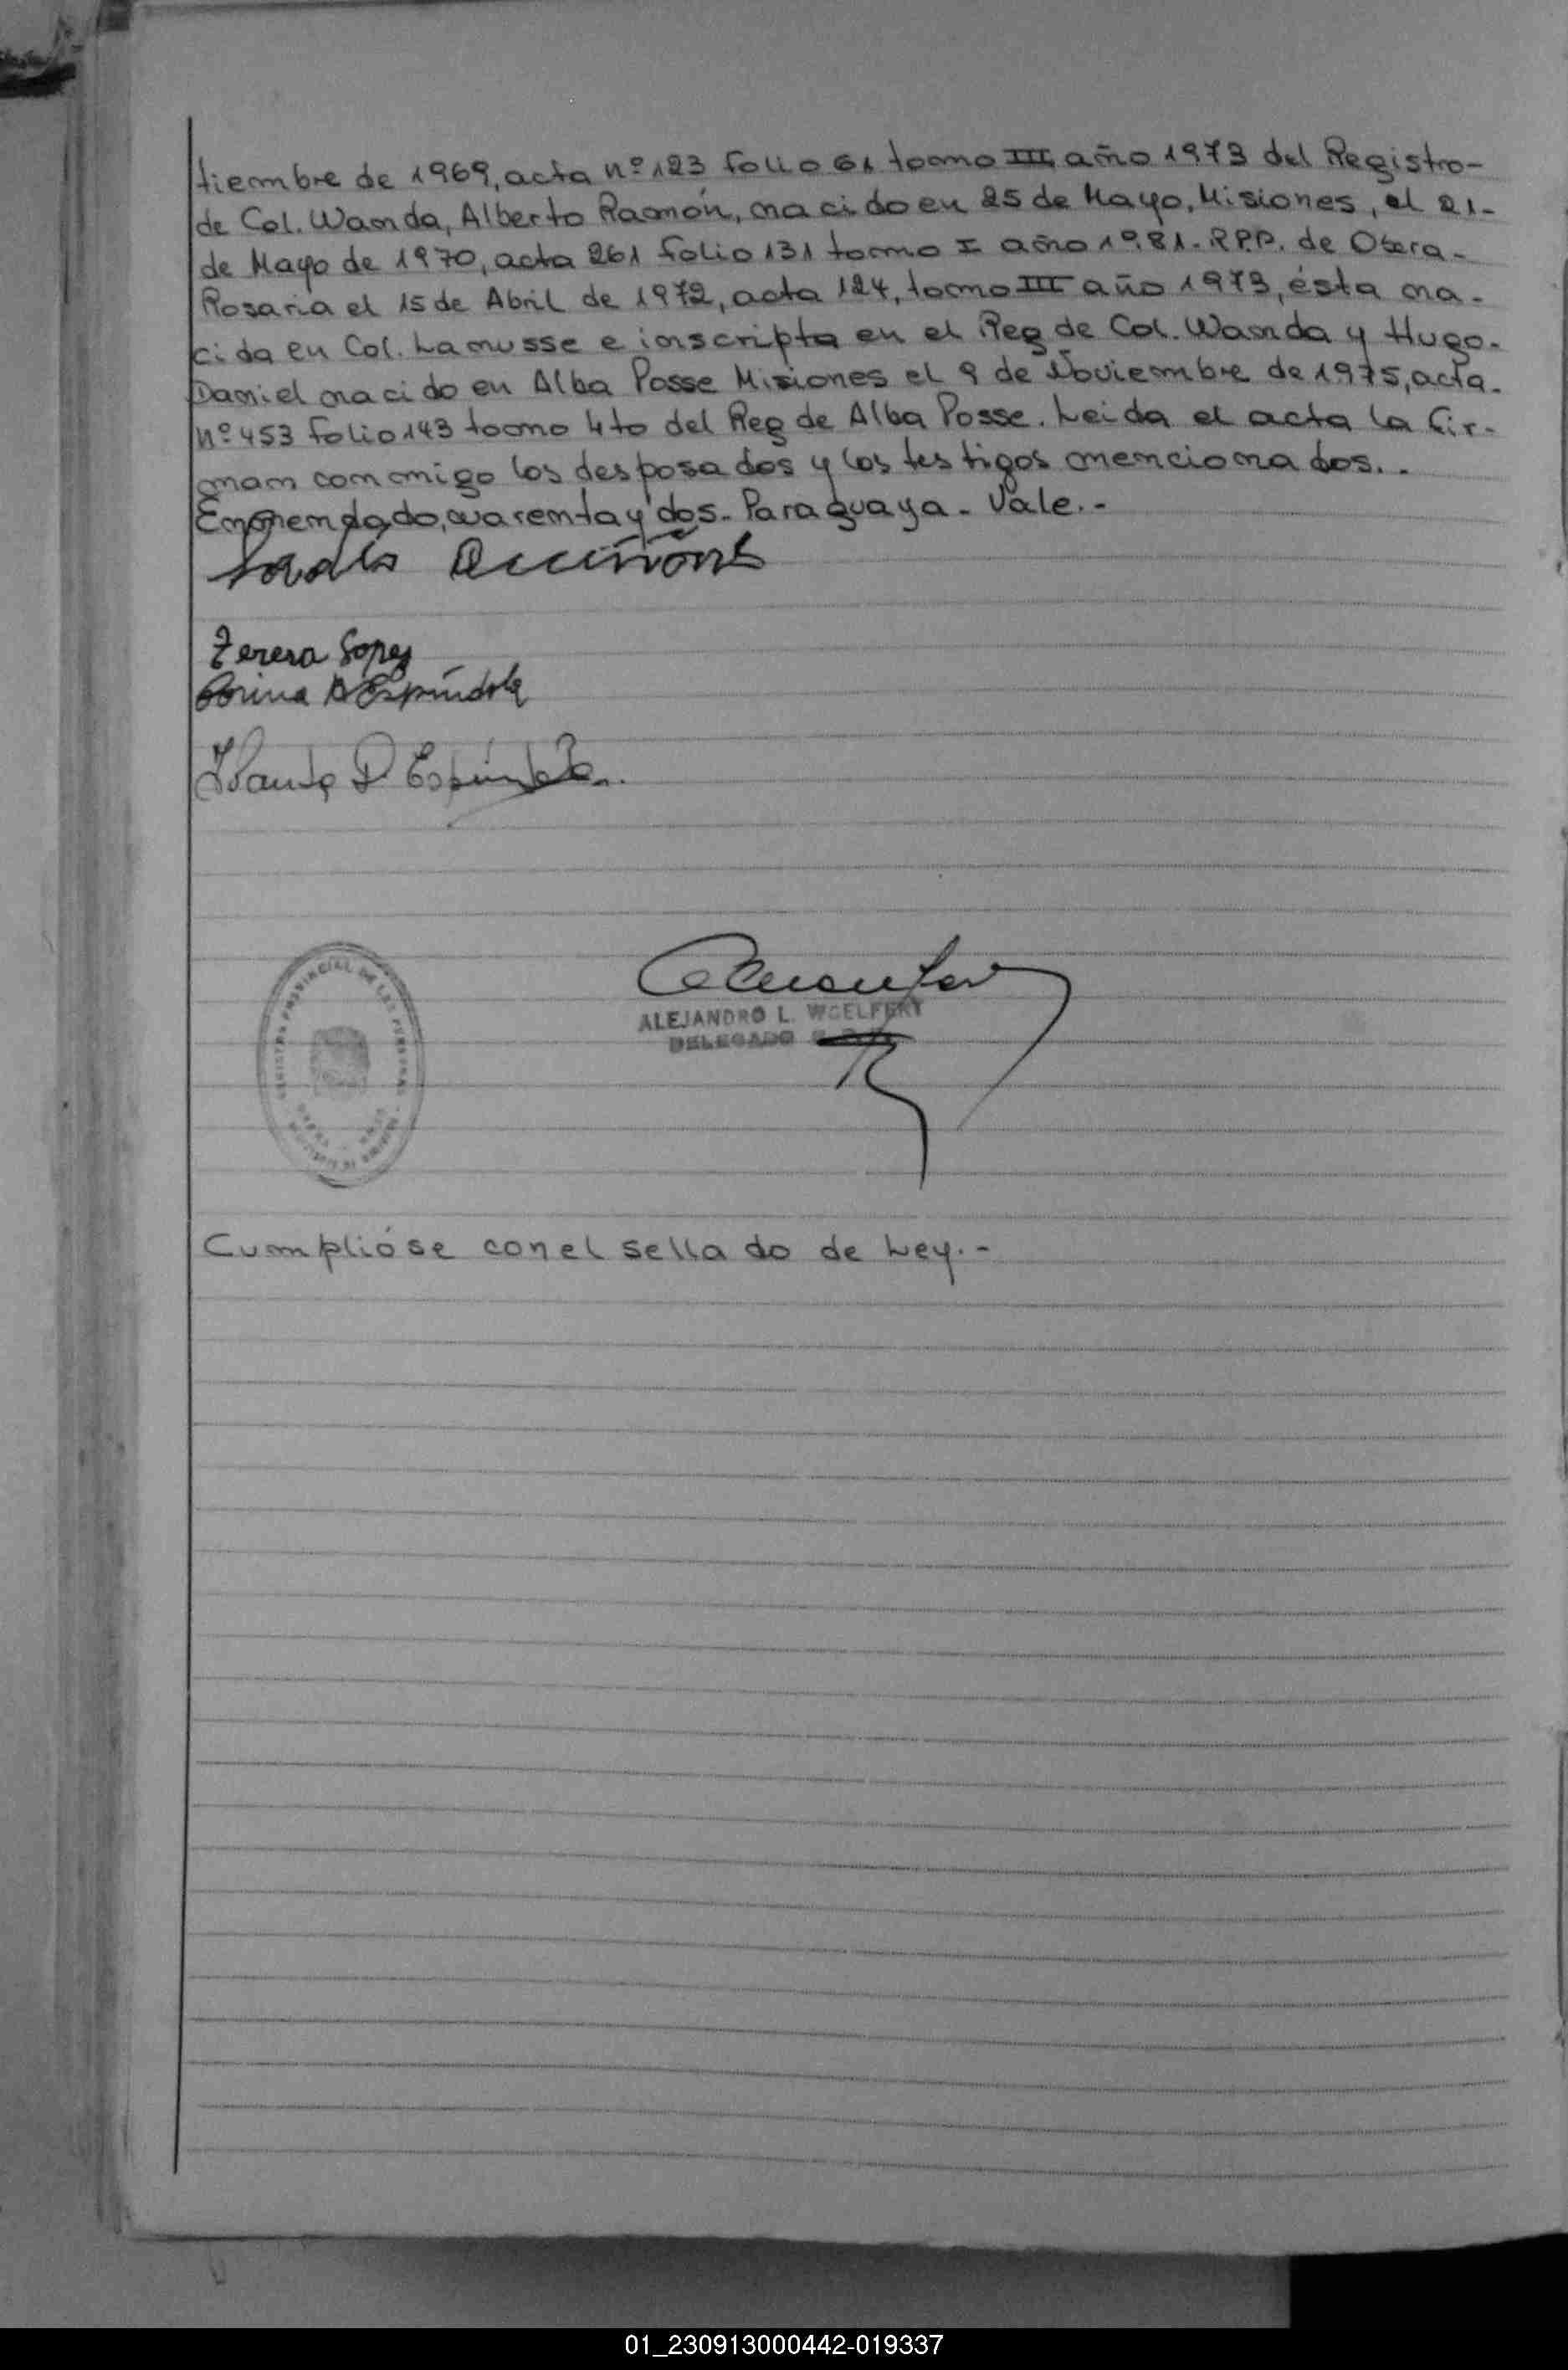 tiembre de 1969, acta nº 123 folio 61 tomo III, año 1973 del Registro-
de Col. Wanda, Alberto Ramón, nacido en 25 de Mayo, Misiones, el 21-
de Mayo de 1970, acta 261 folio 131 tomo I año 1981- R.P.P. de Obera-
Rosaria el 15 de Abril de 1972, acta 124, tomo III año 1973, ésta na-
cida en Col. Lanusse e inscripta en el Reg de Col. Wanda y Hugo-
Daniel nacido en Alba Posse Misiones el 9 de Noviembre de 1975, acta-
nº 453 folio 143 tomo 4to del Reg de Alba Posse. Leida el acta la fir-
man conmigo los desposados y los testigos mencionados..
Enmendado, cuarenta y dos- Paraguaya- Vale.-
Teresa Lopez
Espíndola
Espíndola
REGISTRO PROVINCIAL DE LAS PERSONAS
ALEJANDRO L. WOELFERT
DELEGADO
Cumplióse con el sellado de Ley.-
01_230913000442-019337